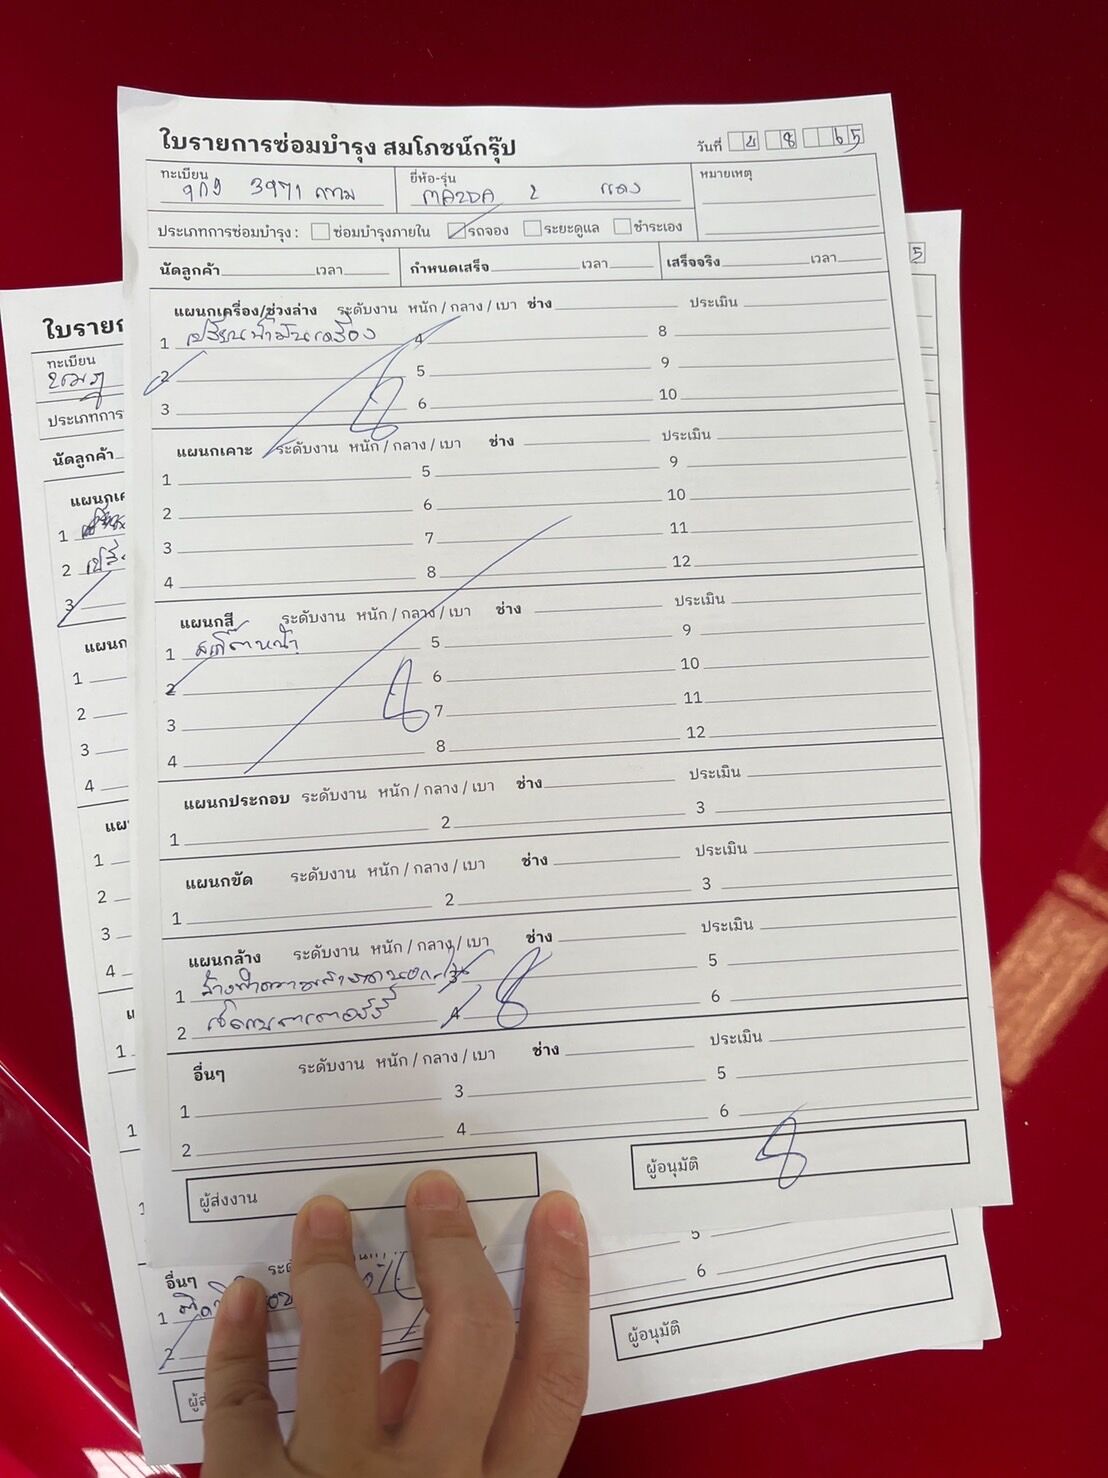 ใบรายการซ่อมบำรุง สมโภชน์กรุ๊ป
วันที่ 4 8 65
ทะเบียน 3971 กทม
ยี่ห้อ-รุ่น MAZDA 2 แดง
หมายเหตุ
ประเภทการซ่อมบำรุง : ซ่อมบำรุงภายใน รถจอง ระยะดูแล ชำระเอง
นัดลูกค้า เวลา กำหนดเสร็จ เวลา เสร็จจริง เวลา
แผนกเครื่อง/ช่วงล่าง ระดับงาน หนัก / กลาง / เบา ช่าง ประเมิน
1 เปลี่ยนน้ำมันเครื่อง 4 8
2 5 9
3 6 10
แผนกเคาะ ระดับงาน หนัก / กลาง / เบา ช่าง ประเมิน
1 5 9
2 6 10
3 7 11
4 8 12
แผนกสี ระดับงาน หนัก / กลาง / เบา ช่าง ประเมิน
1 หน้า 5 9
2 6 10
3 7 11
4 8 12
แผนกประกอบ ระดับงาน หนัก / กลาง / เบา ช่าง ประเมิน
1 2 3
แผนกขัด ระดับงาน หนัก / กลาง / เบา ช่าง ประเมิน
1 2 3
แผนกล้าง ระดับงาน หนัก / กลาง / เบา ช่าง ประเมิน
1 ล้างทำความสะอาดนอก-ใน 3 5
2 เช็คแบตเตอรี่ 4 6
อื่นๆ ระดับงาน หนัก / กลาง / เบา ช่าง ประเมิน
1 3 5
2 4 6
ผู้ส่งงาน
ผู้อนุมัติ
ทะเบียน
นัดลูกค้า
1
2
3
1
2
3
4
1
2
3
4
5
อื่นๆ
1 6
2
ผู้อนุมัติ